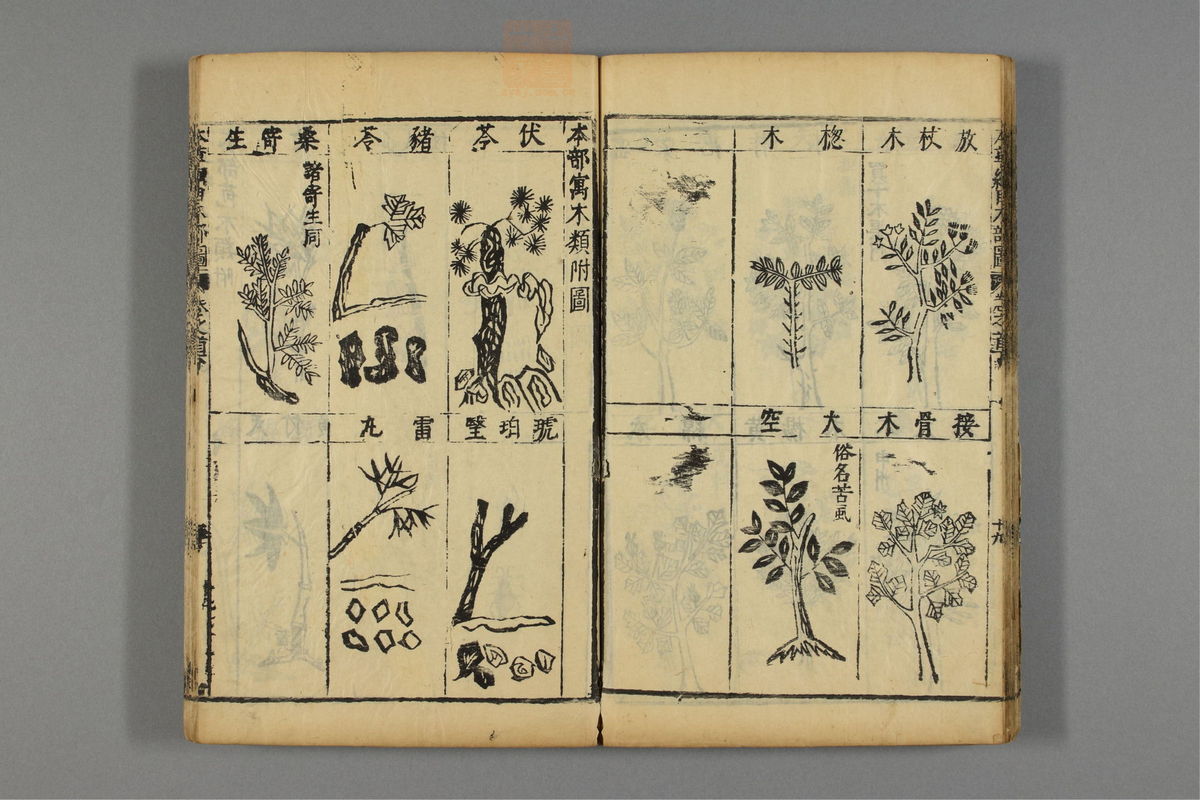 放杖木
楤木
接骨木
大空
俗名苦虱
十九
本部寓木類附圖
伏苓
豬苓
桑寄生
諸寄生同
琥珀瑿
雷丸